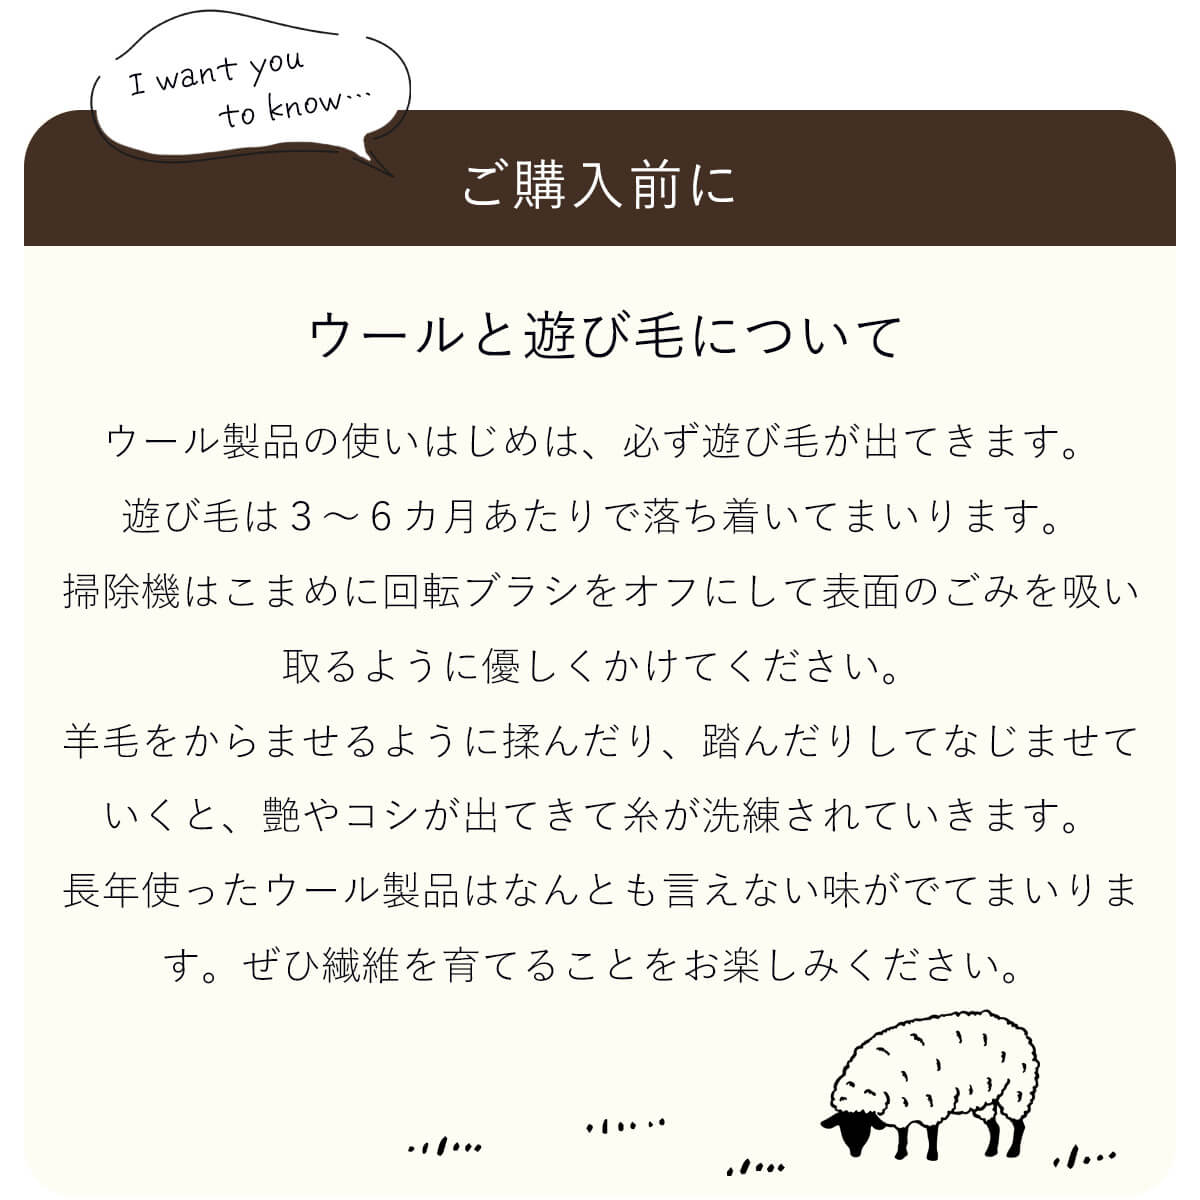 I want you
to know…
ご購入前に
ウールと遊び毛について
ウール製品の使いはじめは、必ず遊び毛が出てきます。
遊び毛は3〜6カ月あたりで落ち着いてまいります。
掃除機はこまめに回転ブラシをオフにして表面のごみを吸い
取るように優しくかけてください。
羊毛をからませるように揉んだり、踏んだりしてなじませて
いくと、艶やコシが出てきて糸が洗練されていきます。
長年使ったウール製品はなんとも言えない味がでてまいりま
す。ぜひ繊維を育てることをお楽しみください。